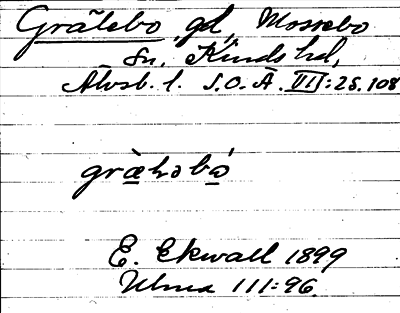 Grälebo, gd, Mossebo
sn, Kinds hd,
Älvsb. l. S.O.Ä. VII:2 s. 108
græ̀ləbó
E. Ekwall 1899
Ulma 111:96.